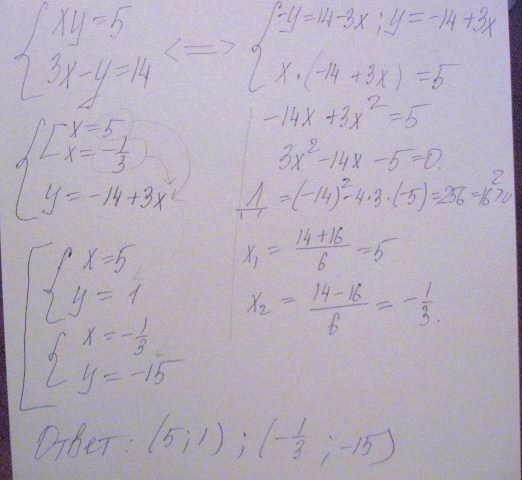 xy=5
3x-y=14
<=>
-y=14-3x; y=-14+3x
x·(-14+3x)=5
-14x+3x²=5
3x²-14x-5=0.
=(-14)²-4·3·(-5)=256=16²>0
x₁=(14+16)/6=5
x₂=(14-16)/6=-1/3.
x=5
x=-1/3
y=-14+3x
x=5
y=1
x=-1/3
y=-15
Ответ: (5;1); (-1/3; -15)